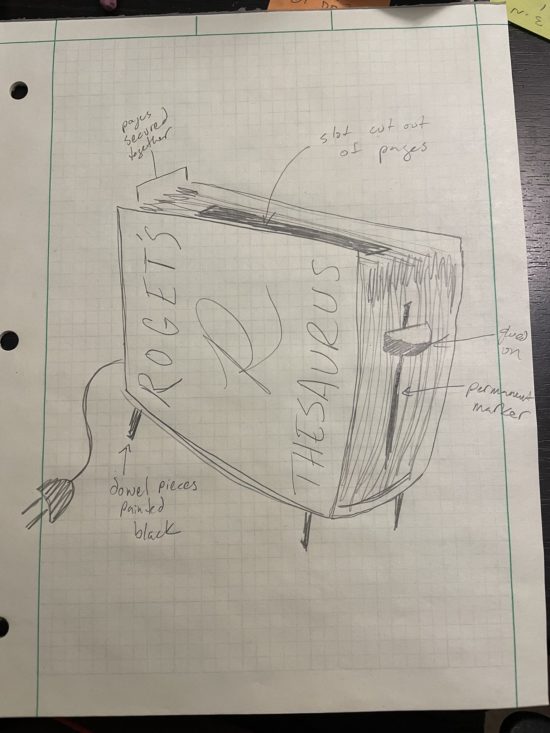 pages
secured
together
slot cut out
of pages
ROGET'S
R
THESAURUS
glued
on
permanent
marker
dowel pieces
painted
black